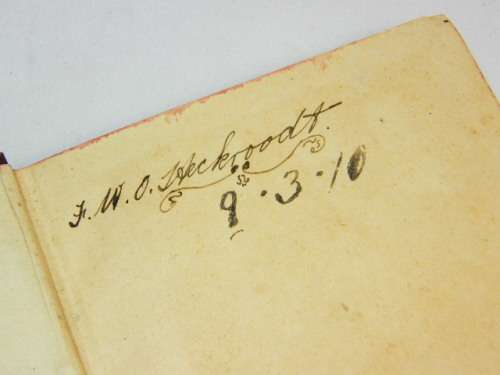 F. W. O. Heckroodt.
9.3.10